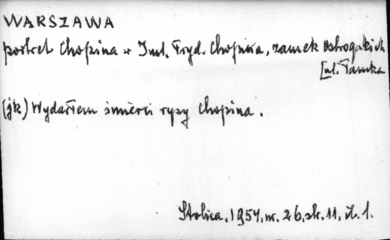 WARSZAWA
portret Chopina w Inst. Fryd. Chopina, zamek Ostrogskich
[ul. Tamka
(jk) Wydarłem śmierci rysy Chopina.
Stolica, 1957, nr. 26, str. 11, il. 1.